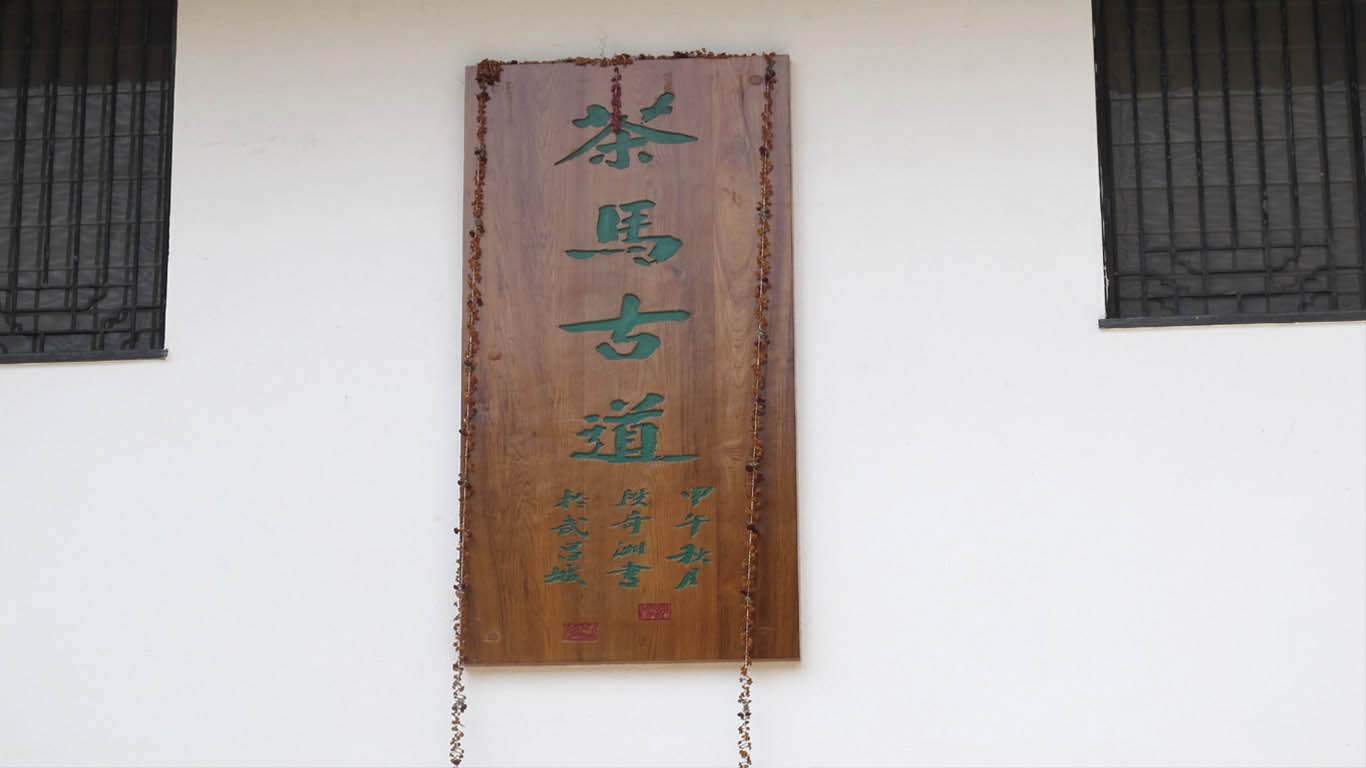 茶馬古道
甲午秋月
段奇洲書
於武昌城